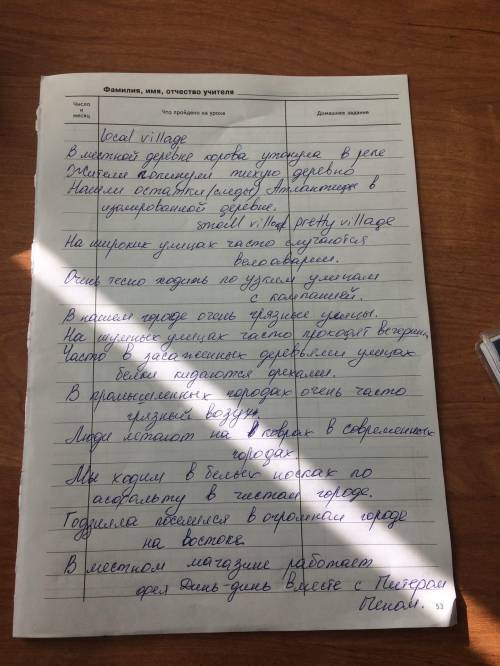 Фамилия, имя, отчество учителя
Число и месяц Что пройдено на уроке Домашнее задание
local village
В местной деревне корова утонула в реке
Жители покинули тихую деревню
Нашли остатки/следы Атлантиды в
изолированной деревне.
small village pretty village
На широких улицах часто случаются
велоаварии.
Очень тесно ходить по узким улицам
с компанией.
В нашем городе очень грязные улицы.
На шумных улицах часто проходят вечеринки
Часто в засаженных деревьями улицах
белки кидаются орехами.
В промышленных городах очень часто
грязный воздух.
Люди летают на коврах в современных
городах
Мы ходим в белых носках по
асфальту в чистом городе.
Годзилла поселился в огромном городе
на востоке
В местном магазине работает
фея Динь-динь вместе с Питером
Пеном.
53